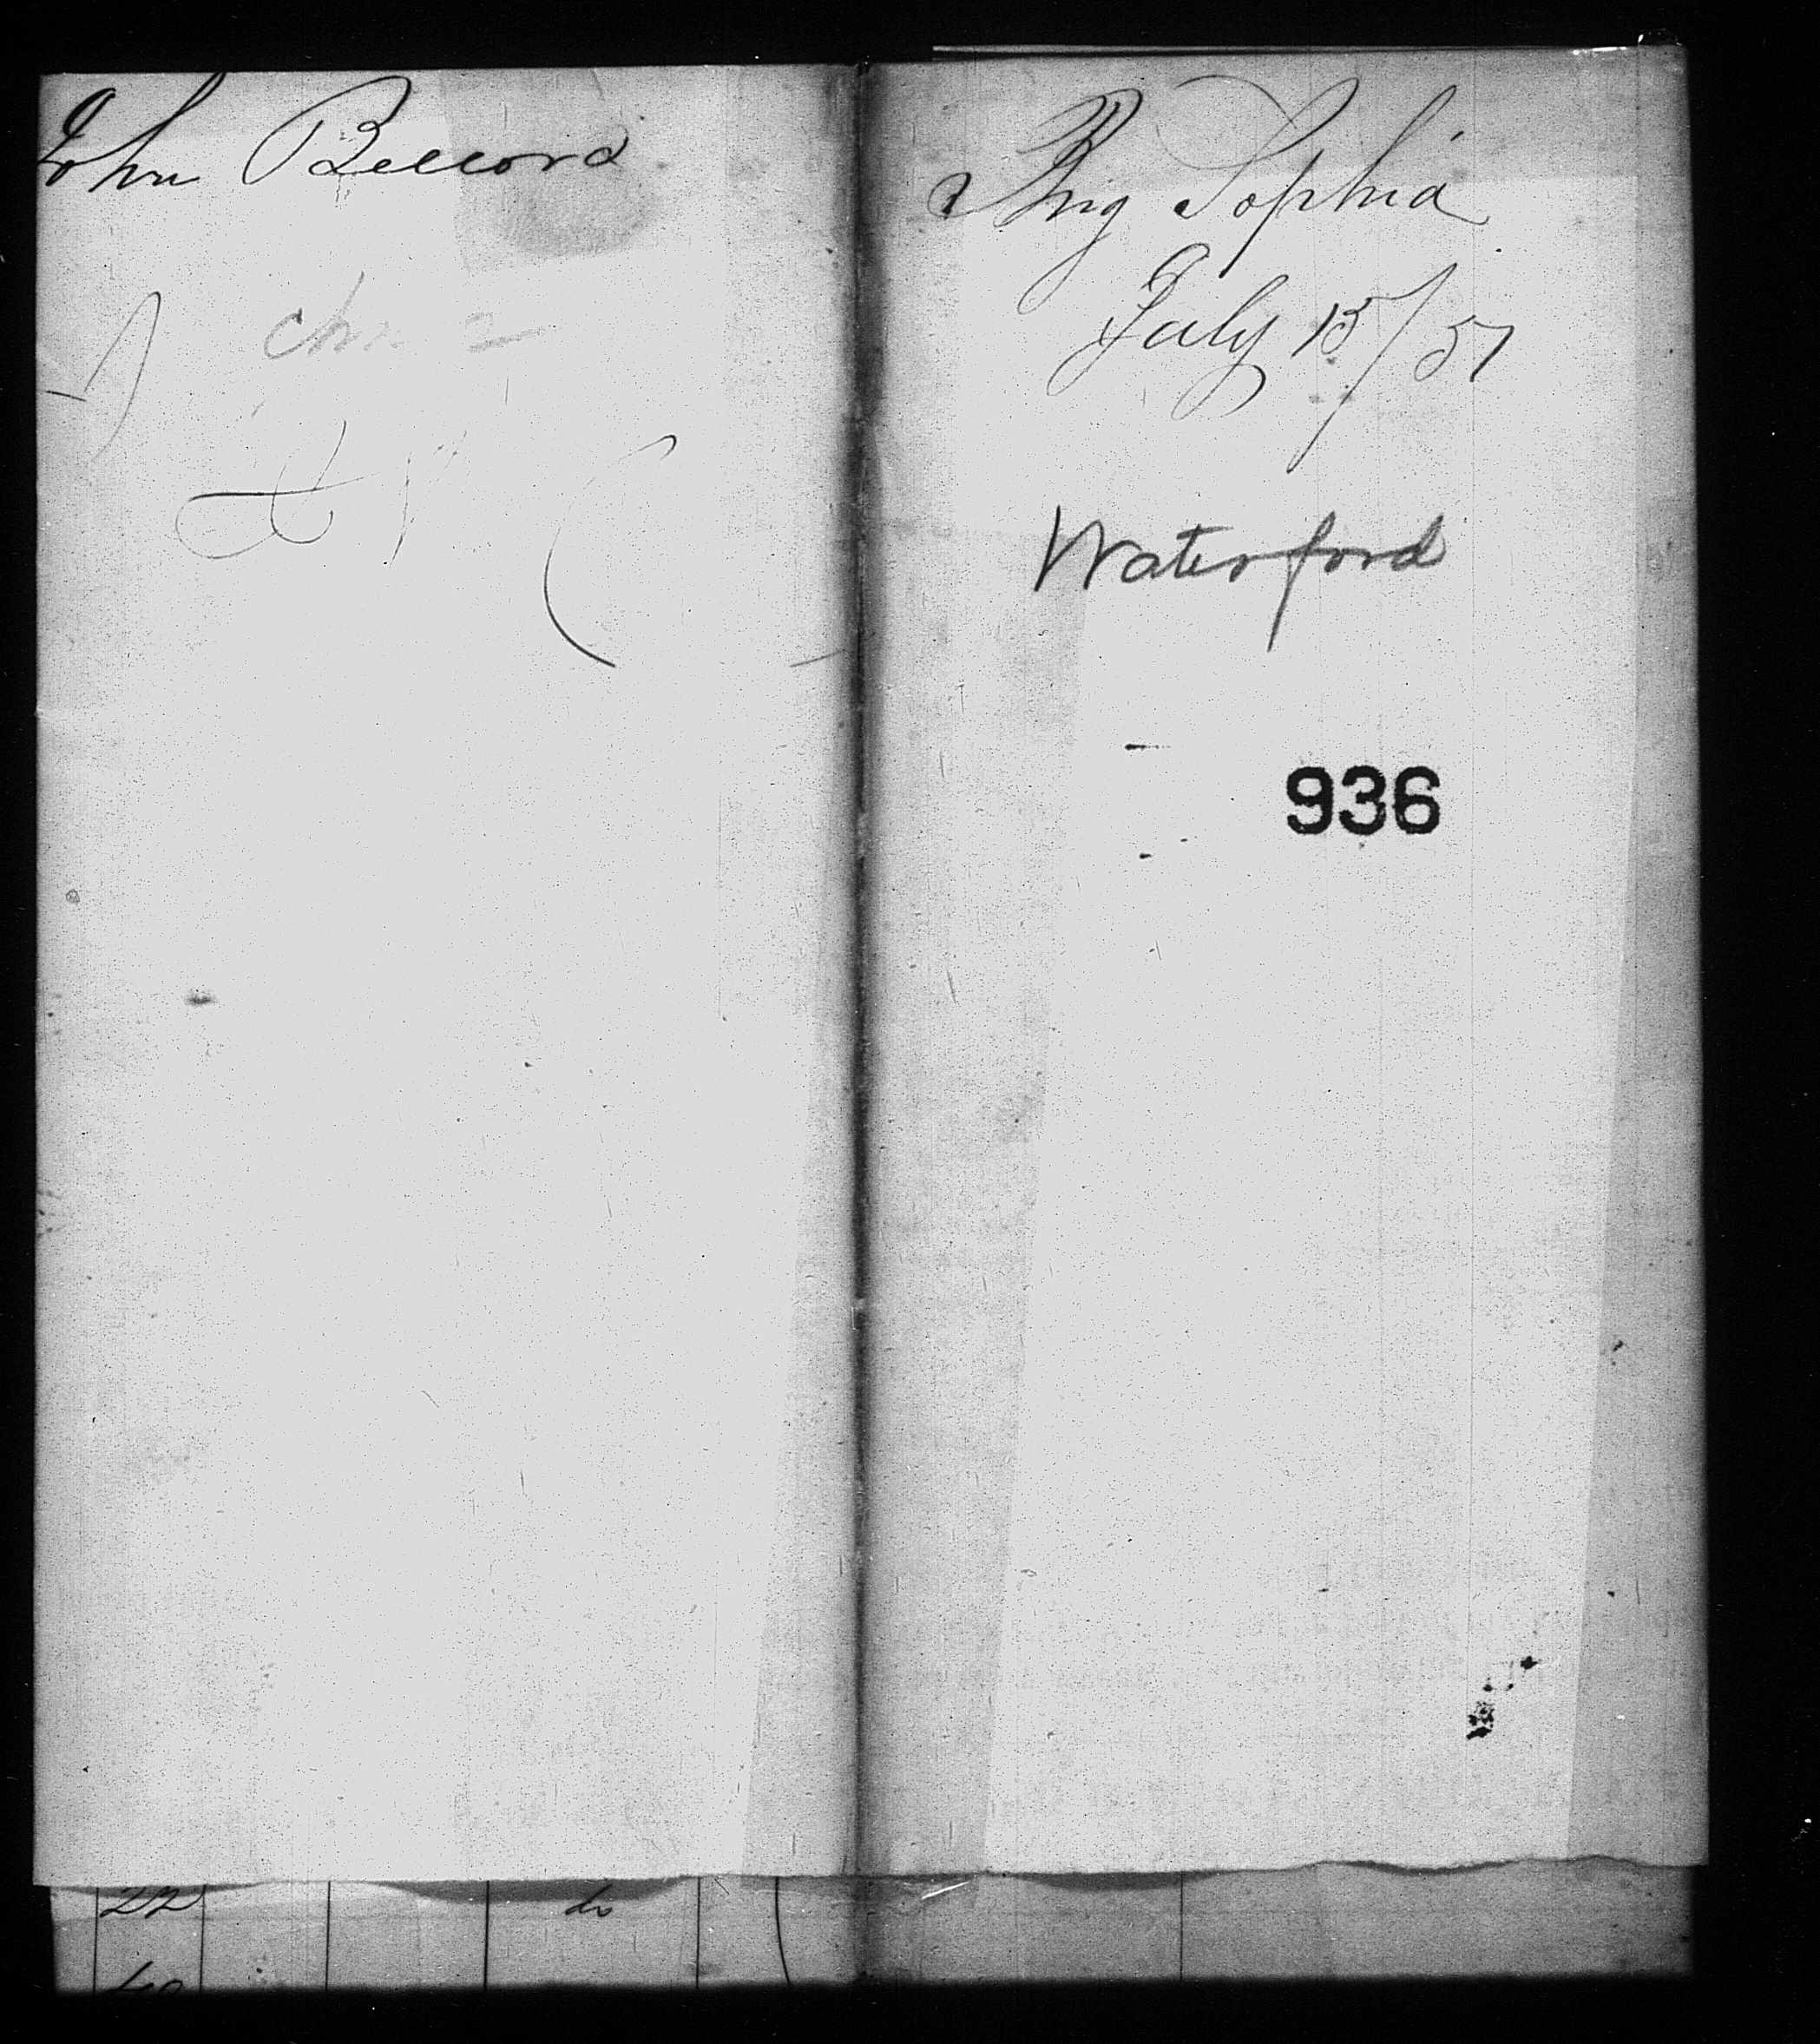 John Bellord
Brig Sophia
July 15/51
Waterford
936
22 do